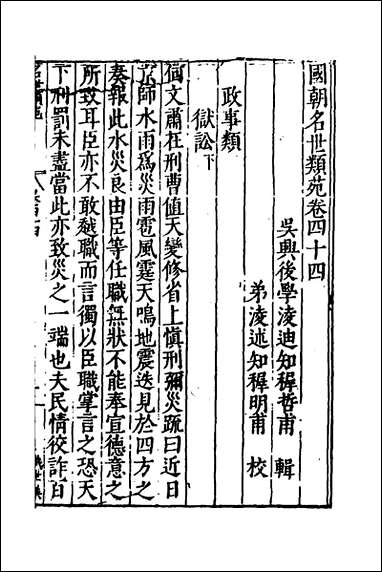 國朝名世類苑卷四十四
吳興後學凌迪知稺哲甫 輯
弟凌述知稺明甫 校
政事類
獄訟下
何文肅在刑曹值天變修省上愼刑彌災疏曰近日
京師水雨爲災雨雹風霾天鳴地震迭見於四方之
奏報此水災良由臣等任職無狀不能奉宣德意之
所致耳臣亦不敢越職而言獨以臣職掌言之恐天
下刑罰未盡當此亦致災之一端也夫民情狡詐百